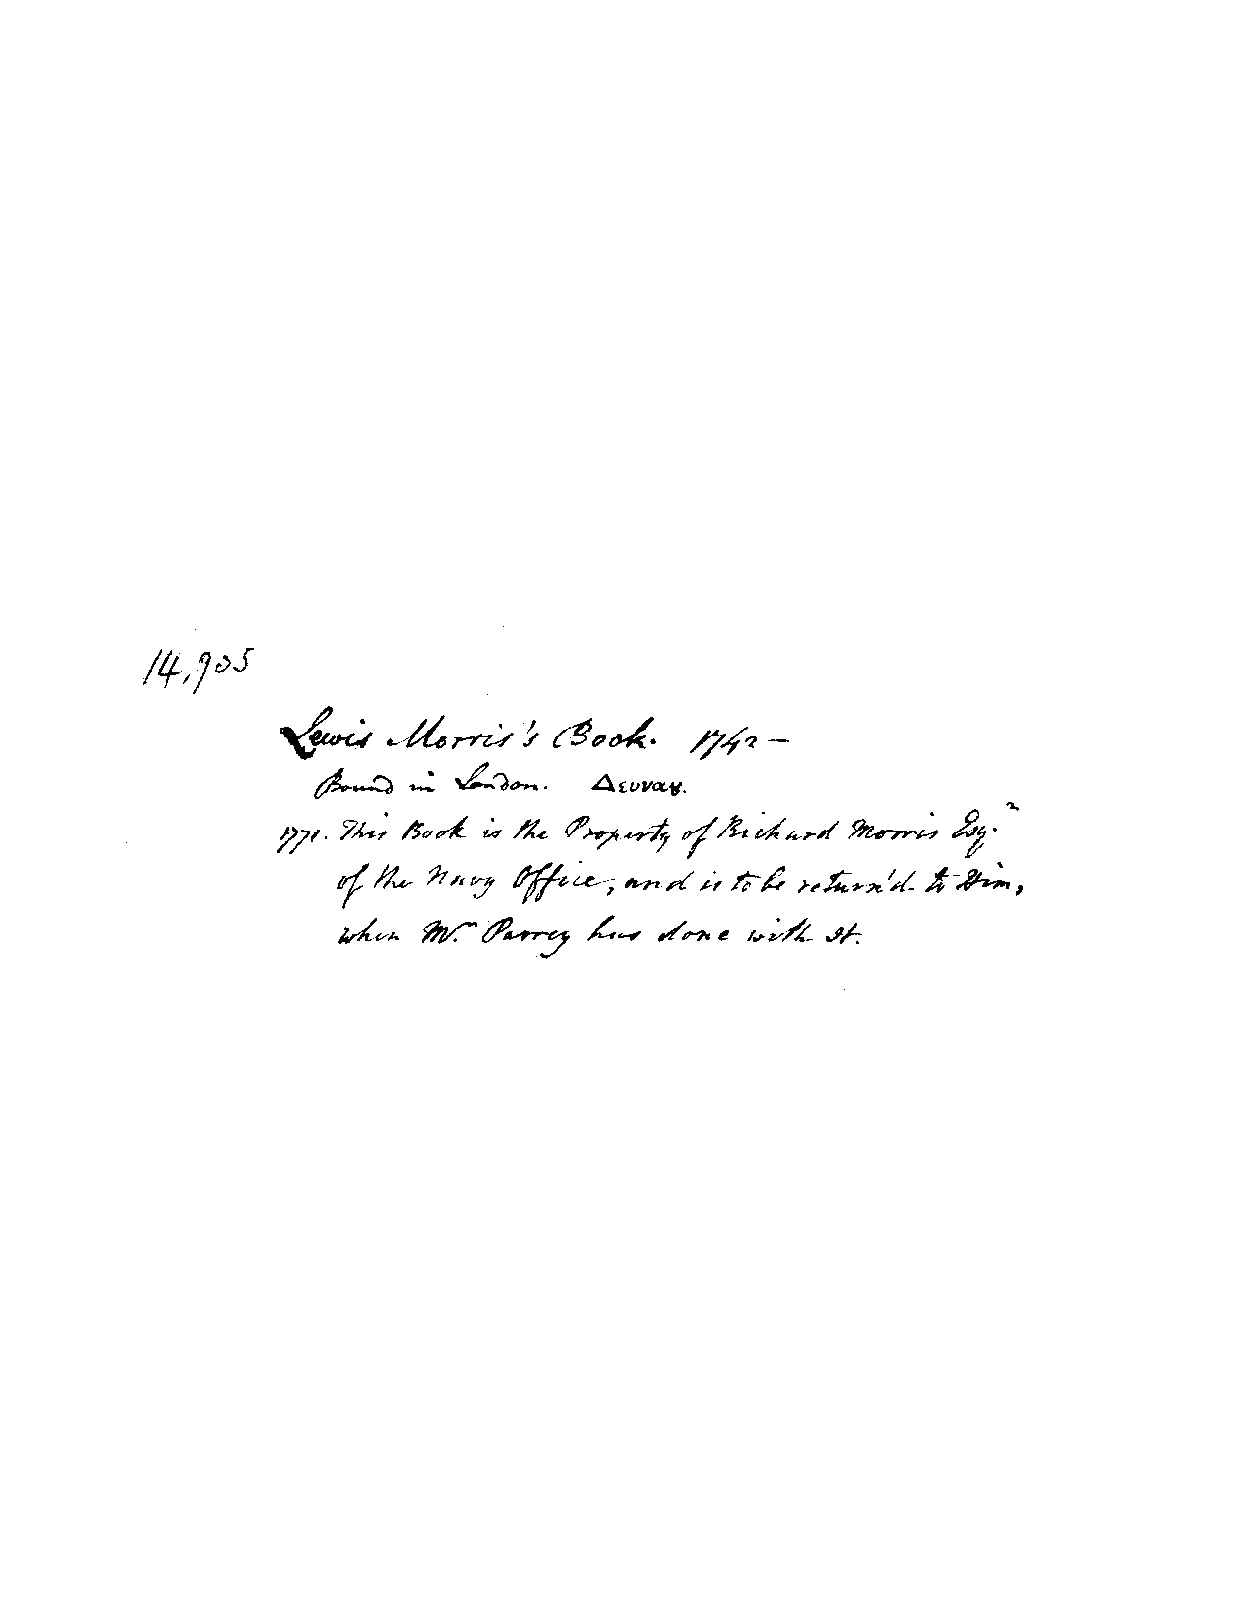 14,905
Lewis Morris's Book. 1742 –
Bound in London. Δευναȣ.
1771. This Book is the Property of Richard Morris Esq.r
of the Navy Office, and is to be return'd to Him,
when Mr. Parrey has done with It.